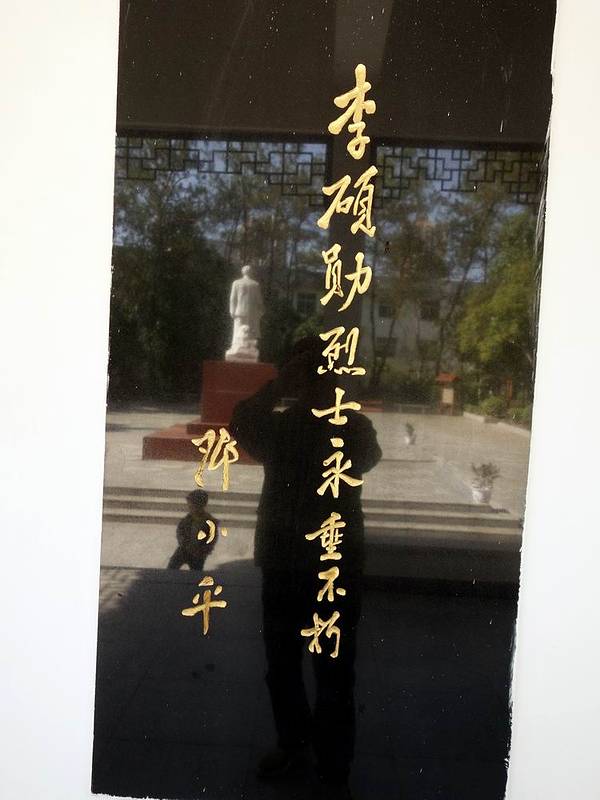 李硕勋烈士永垂不朽
邓小平